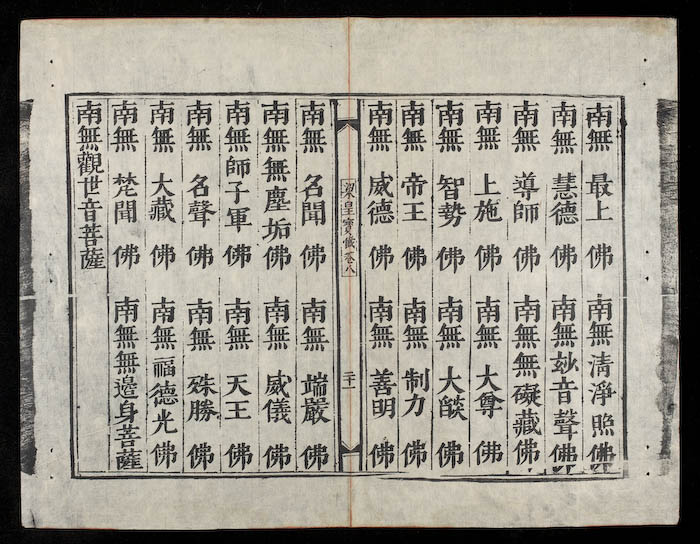 南無最上佛 南無清淨照佛
南無慧德佛 南無妙音聲佛
南無導師佛 南無無礙藏佛
南無上施佛 南無大尊佛
南無智勢佛 南無大燄佛
南無帝王佛 南無制力佛
南無威德佛 南無善明佛
梁皇寶懺卷八 二十一
南無名聞佛 南無端嚴佛
南無無塵垢佛 南無威儀佛
南無師子軍佛 南無天王佛
南無名聲佛 南無殊勝佛
南無大藏佛 南無福德光佛
南無梵聞佛 南無無邊身菩薩
南無觀世音菩薩